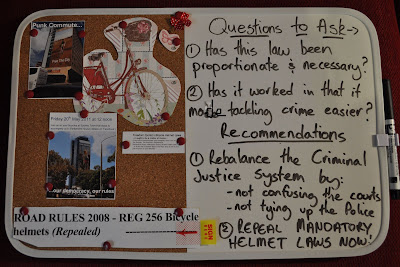 Punk Commute...
Friday 20th May 2011 at 12 noon
...our democracy, our rules
ROAD RULES 2008 - REG 256 Bicycle
helmets (Repealed)
SIGN HERE
Questions to Ask →
① Has this law been
proportionate & necessary?
② Has it worked in that it
made tackling crime easier?
Recommendations
① Rebalance the Criminal
Justice System by:
- not confusing the courts
- not tying up the Police
② REPEAL MANDATORY
HELMET LAWS NOW!